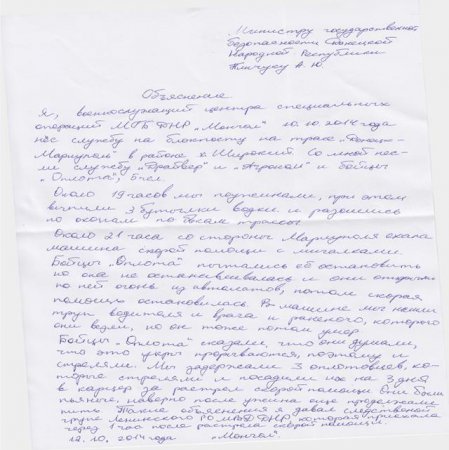 Министру государственной
безопасности Донецкой
Народной Республики
Пинчуку А.Ю.
Объяснение
Я, военнослужащий центра специальных
операций МГБ ДНР „Мончай" 10.10.2014 года
нёс службу на блокпосту на трасе „Донецк-
Мариуполь" в районе х. Широкий. Со мной нес-
ли службу „Драйвер" и „Агроном" и бойцы
„Оплота", 5 чел.
Около 19 часов мы поужинали, при этом
выпили 3 бутылки водки и разошлись
по окопам по бокам трассы.
Около 21 часа со стороны Мариуполя ехала
машина скорой помощи с мигалками.
Бойцы „Оплота" пытались её остановить
но она не останавливалась и они открыли
по ней огонь из автоматов, потом скорая
помощь остановилась. В машине мы нашли
труп водителя и врача и раненого, которого
они везли, но он тоже потом умер
Бойцы „Оплота" сказали, что они думали,
что это укры прорываются, поэтому и
стреляли. Мы задержали 3 оплотовцев, ко-
торые стреляли и посадили их на 3 дня
в карцер за растрел скорой помощи. Они были
пьяные, наверно после ужина еще продолжали
пить. Такие объяснения я давал следственой
групе Ленинского РО МВД ДНР, которая приехала
через 1 час после растрела скорой помощи.
12.10.2014 года „Мончай"